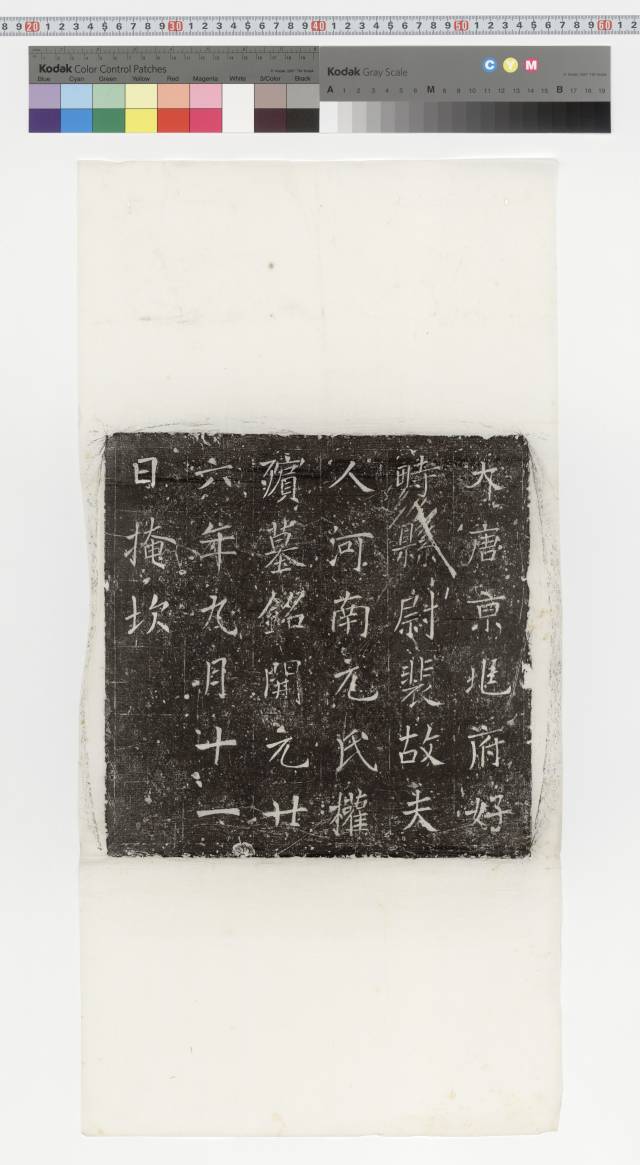 8 9 20 1 2 3 4 5 6 7 8 9 30 1 2 3 4 5 6 7 8 9 40 1 2 3 4 5 6 7 8 9 50 1 2 3 4 5 6 7 8 9 60 1 2
Kodak Color Control Patches
Blue Cyan Green Yellow Red Magenta White 3/Color Black
Kodak Gray Scale
C Y M
A 1 2 3 4 5 6 M 8 9 10 11 12 13 14 15 B 17 18 19
大唐京兆府好
畤縣尉裴故夫
人河南元氏權
殯墓銘開元廿
六年九月十一
日掩坎